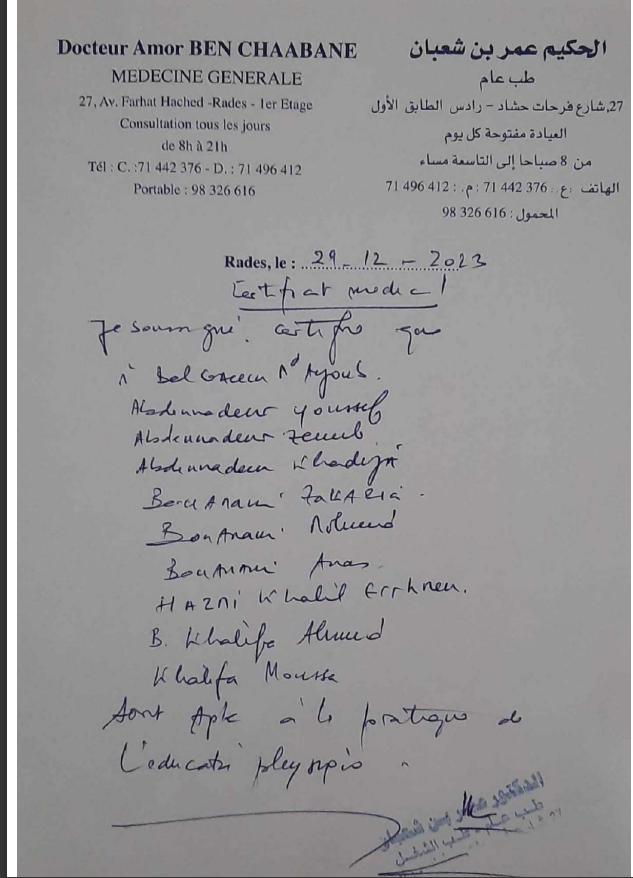 Docteur Amor BEN CHAABANE
MEDECINE GENERALE
27, Av. Farhat Hached -Rades - 1er Etage
Consultation tous les jours
de 8h à 21h
Tél : C. :71 442 376 - D. : 71 496 412
Portable : 98 326 616
الحكيم عمر بن شعبان
طب عام
27,شارع فرحات حشاد – رادس الطابق الأول
العيادة مفتوحة كل يوم
من 8 صباحا إلى التاسعة مساء
الهاتف :ع. : 376 442 71 : م. : 412 496 71
المحمول : 616 326 98
Rades, le : 29-12-2023
Certificat medical
Je soussigné certifie que
Bel Gacem Md Ayoub.
Abdennadeur Youssef
Abdennadeur Zeineb
Abdennadeur Khadija
Bou Anani Zakaria
Bou Anani Mohamed
Bou Anani Anas
HAZMI Khalil
B. Khalifa Ahmed
Khalifa Moussa
Sont Apte à la pratique de
L'education physique
الدكتور عمر بن شعبان